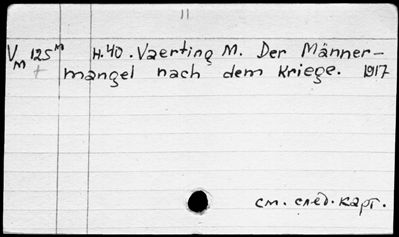 11
V M 125 м H.40. Vaerting M. Der Männer-
+ mangel nach dem Kriege. 1917
см. след. карт.